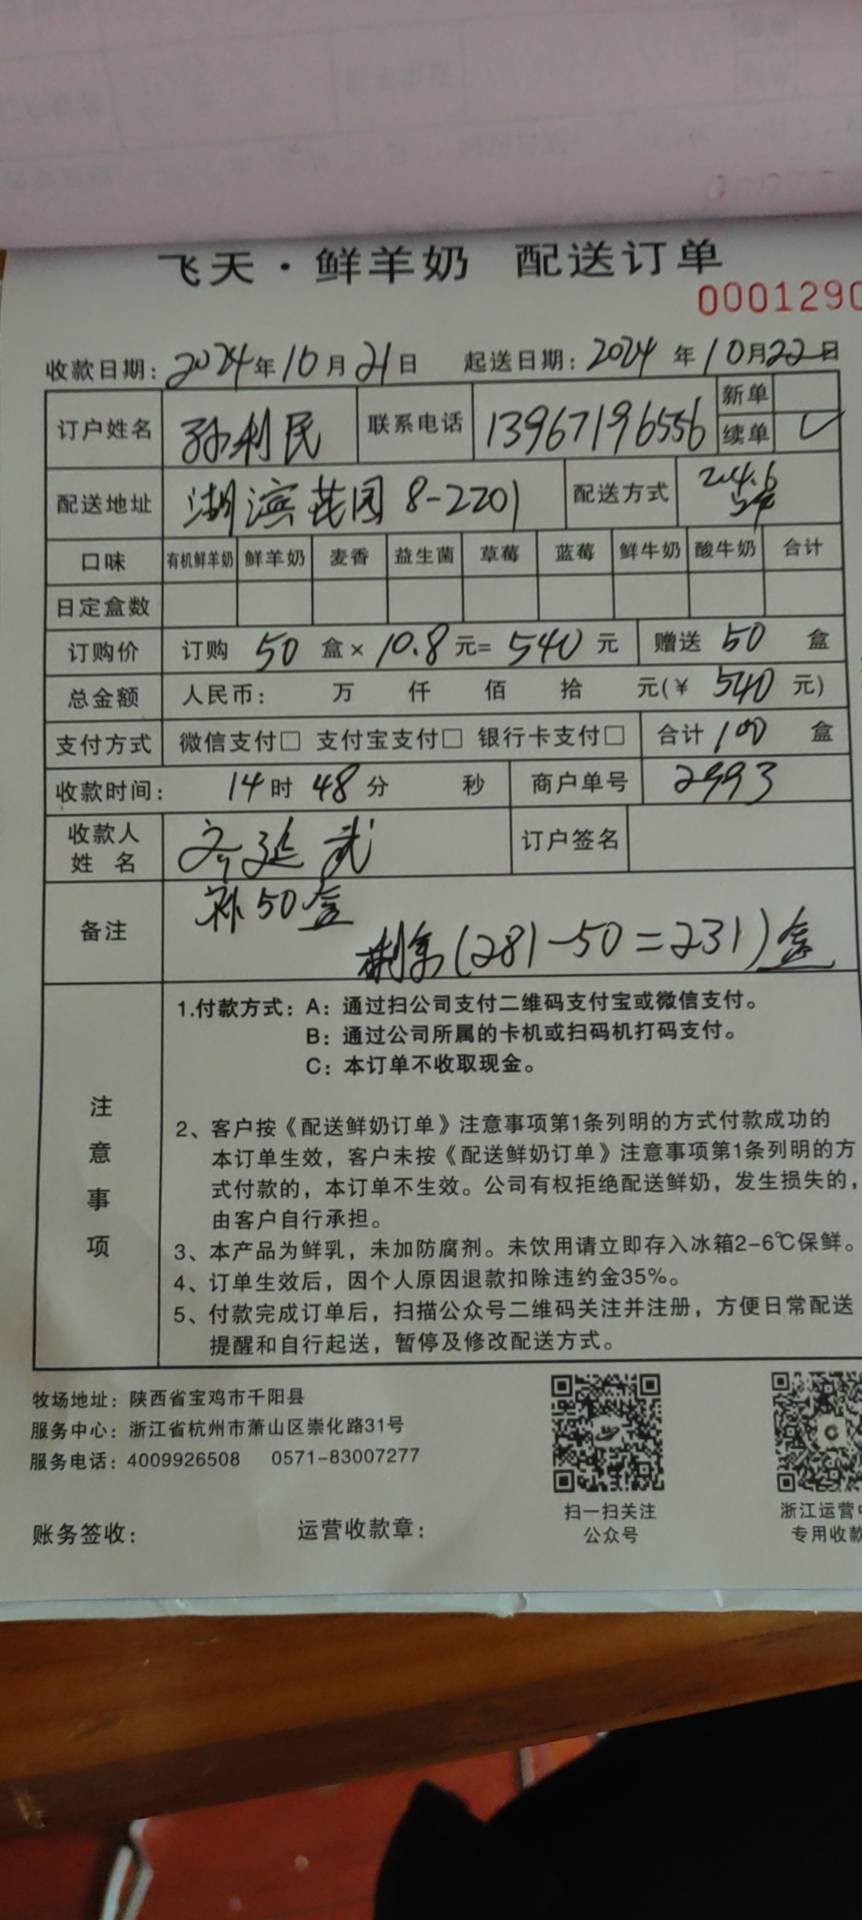 飞天·鲜羊奶 配送订单
0001290
收款日期：2024年10月21日 起送日期：2024年10月22日
订户姓名 孙利民 联系电话 13967196556 新单
续单 ✓
配送地址 湖滨花园 8-2201 配送方式
口味 有机鲜羊奶 鲜羊奶 麦香 益生菌 草莓 蓝莓 鲜牛奶 酸牛奶 合计
日定盒数
订购价 订购 50 盒×10.8元=540元 赠送 50 盒
总金额 人民币： 万 仟 佰 拾 元(¥ 540 元)
支付方式 微信支付□ 支付宝支付□ 银行卡支付□ 合计 100 盒
收款时间： 14时48分 秒 商户单号 2993
收款人姓名 延武 订户签名
备注 补50盒
剩余(281-50=231)盒
注意事项
1.付款方式：A：通过扫公司支付二维码支付宝或微信支付。
B：通过公司所属的卡机或扫码机打码支付。
C：本订单不收取现金。
2、客户按《配送鲜奶订单》注意事项第1条列明的方式付款成功的
本订单生效，客户未按《配送鲜奶订单》注意事项第1条列明的方
式付款的，本订单不生效。公司有权拒绝配送鲜奶，发生损失的，
由客户自行承担。
3、本产品为鲜乳，未加防腐剂。未饮用请立即存入冰箱2-6℃保鲜。
4、订单生效后，因个人原因退款扣除违约金35%。
5、付款完成订单后，扫描公众号二维码关注并注册，方便日常配送
提醒和自行起送，暂停及修改配送方式。
牧场地址：陕西省宝鸡市千阳县
服务中心：浙江省杭州市萧山区崇化路31号
服务电话：4009926508 0571-83007277
扫一扫关注
公众号
浙江运营
专用收款
账务签收： 运营收款章：